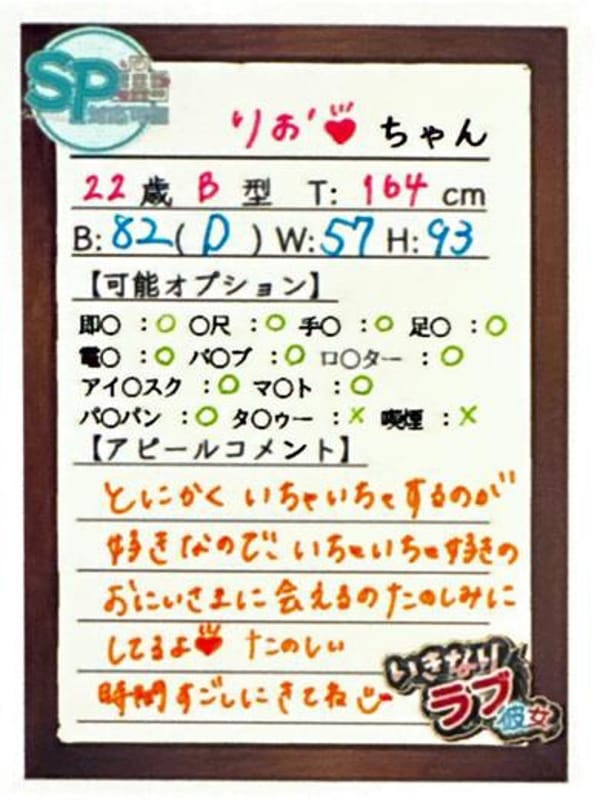 SP
りお♥ちゃん
22歳 B型 T: 164 cm
B: 82(D) W: 57 H: 93
【可能オプション】
即〇 :○ 〇尺 :○ 手〇 :○ 足〇 :○
電〇 :○ バ〇ブ :○ ロ〇ター :○
アイ〇スク :○ マ〇ト :○
パ〇パン :○ タ〇ゥー :× 喫煙 :×
【アピールコメント】
とにかくいちゃいちゃするのが
好きなので、いちゃいちゃ好きの
おにいさまに会えるのたのしみに
してるよ♥ たのしい
時間すごしにきてね
いきなり
ラブ彼女